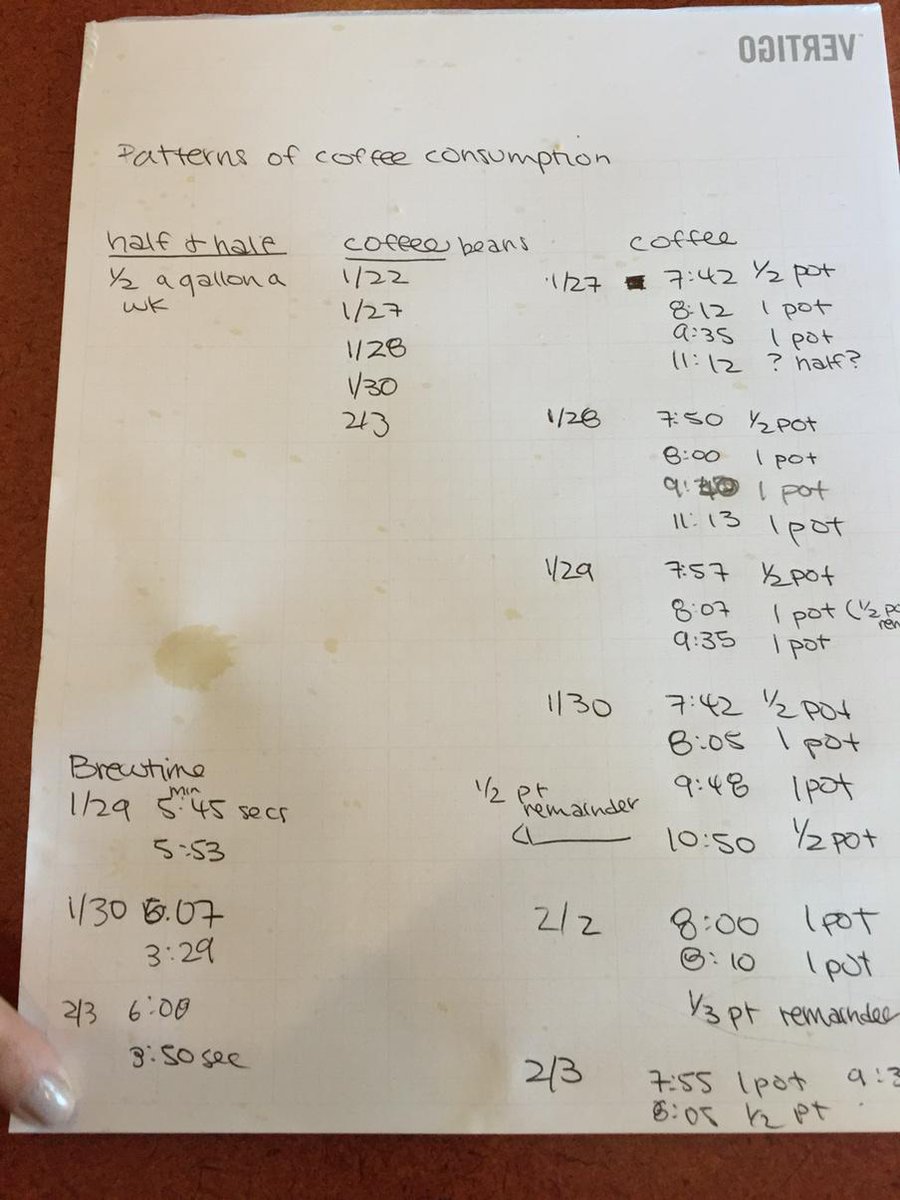 VERTIGO
Patterns of coffee consumption
half & half
1/2 a gallon a
wk
coffee beans
1/22
1/27
1/28
1/30
2/3
coffee
1/27 7:42 1/2 pot
8:12 1 pot
9:35 1 pot
11:12 ? half?
1/28 7:50 1/2 pot
8:00 1 pot
9:40 1 pot
11:13 1 pot
1/29 7:57 1/2 pot
8:07 1 pot (1/2 po
rem
9:35 1 pot
1/30 7:42 1/2 pot
8:05 1 pot
9:48 1 pot
1/2 pt
remainder
10:50 1/2 pot
2/2 8:00 1 pot
8:10 1 pot
1/3 pt remainder
2/3 7:55 1 pot 9:3
8:05 1/2 pt
Brewtime
1/29 5:45 secs
min
5:53
1/30 6:07
3:29
2/3 6:00
3:50 sec